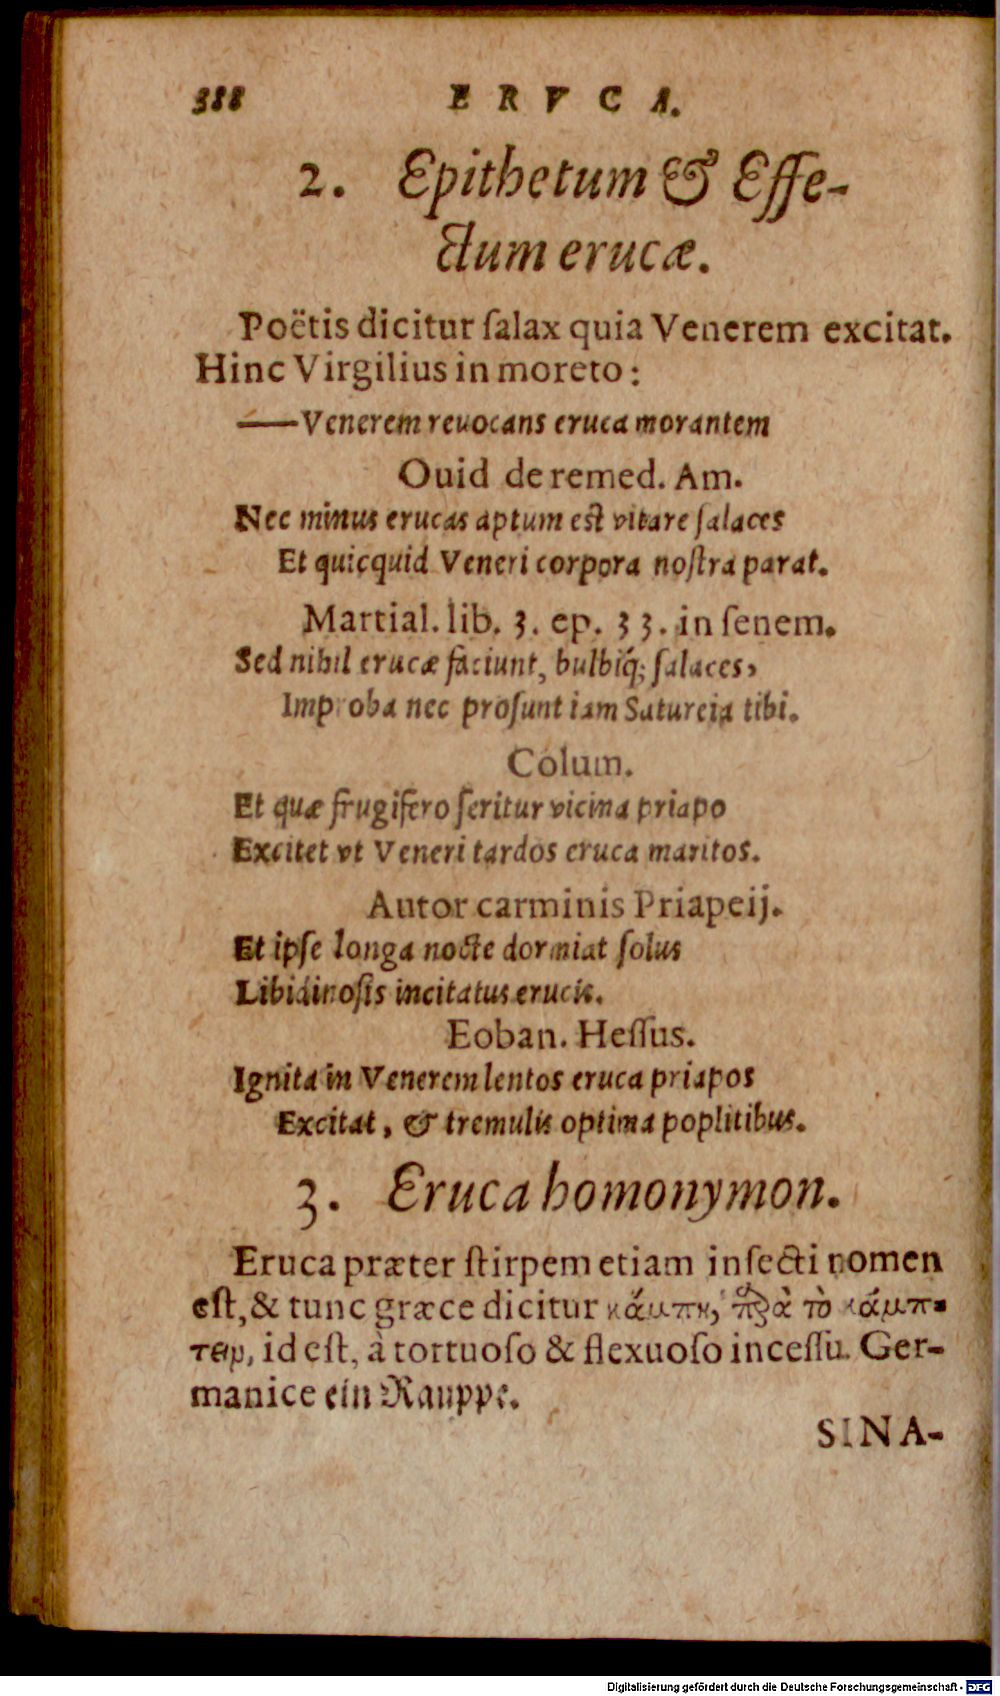 388 ERVCA.
2. Epithetum & Effe-
ctum erucæ.
Poëtis dicitur ſalax quia Venerem excitat.
Hinc Virgilius in moreto:
—Venerem reuocans eruca morantem
Ouid de remed. Am.
Nec minus erucas aptum eſt vitare ſalaces
Et quicquid Veneri corpora noſtra parat.
Martial. lib. 3. ep. 33. in ſenem.
Sed nihil erucæ faciunt, bulbiq́; ſalaces,
Improba nec proſunt iam Satureia tibi.
Colum.
Et quæ frugifero ſeritur vicina priapo
Excitet vt Veneri tardos eruca maritos.
Autor carminis Priapeij.
Et ipſe longa nocte dormiat ſolus
Libidinoſis incitatus erucis.
Eoban. Heſſus.
Ignita in Venerem lentos eruca priapos
Excitat, & tremulis optima poplitibus.
3. Eruca homonymon.
Eruca præter ſtirpem etiam inſecti nomen
eſt, & tunc græce dicitur κάμπη, παρὰ τὸ κάμπ-
τειν, id eſt, à tortuoſo & flexuoſo inceſſu. Ger-
manice ein Rauppe.
SINA-
Digitalisierung gefördert durch die Deutsche Forschungsgemeinschaft - DFG